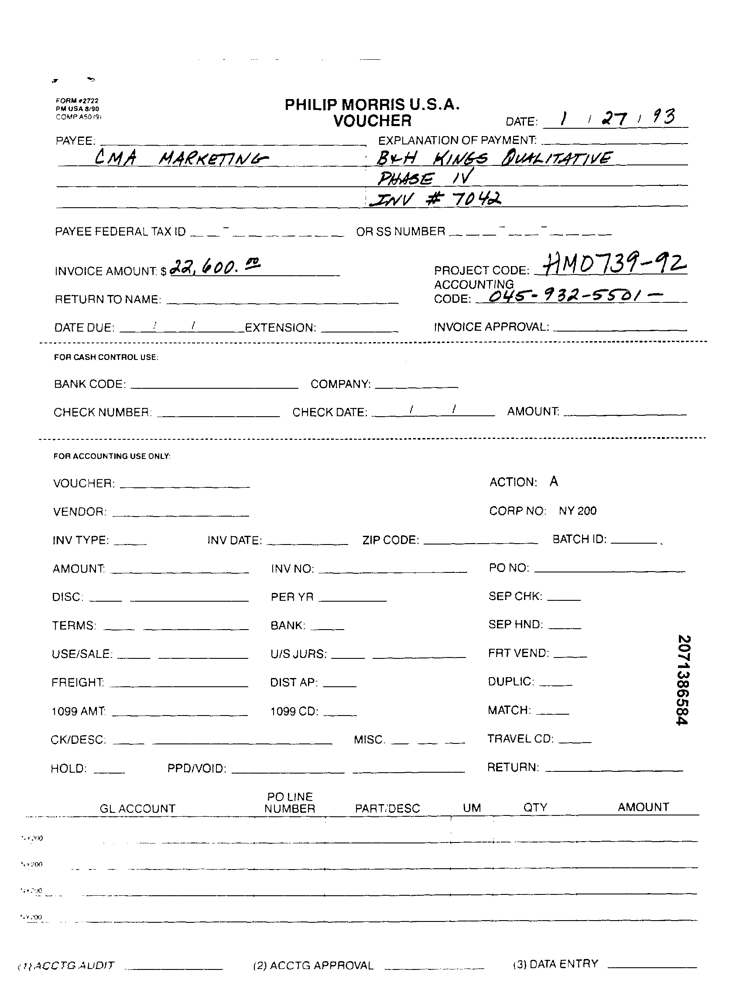 FORM #2722
PM USA 8/90
COMP A50 (9)
PHILIP MORRIS U.S.A.
VOUCHER
DATE: 1 / 27 / 93
PAYEE: EXPLANATION OF PAYMENT:
CMA MARKETING B&H KINGS QUALITATIVE
PHASE IV
INV # 7042
PAYEE FEDERAL TAX ID __-_______ OR SS NUMBER ___-__-____
INVOICE AMOUNT: $ 22,600.00 PROJECT CODE: HMD739-92
RETURN TO NAME: ACCOUNTING CODE: 045-932-5501-
DATE DUE: / / EXTENSION: INVOICE APPROVAL:
FOR CASH CONTROL USE:
BANK CODE: COMPANY:
CHECK NUMBER: CHECK DATE: / / AMOUNT:
FOR ACCOUNTING USE ONLY:
VOUCHER: ACTION: A
VENDOR: CORP NO: NY 200
INV TYPE: INV DATE: ZIP CODE: BATCH ID:
AMOUNT: INV NO: PO NO:
DISC: PER YR SEP CHK:
TERMS: BANK: SEP HND:
USE/SALE: U/S JURS: FRT VEND:
FREIGHT: DIST AP: DUPLIC:
1099 AMT: 1099 CD: MATCH:
CK/DESC: MISC. TRAVEL CD:
HOLD: PPD/VOID: RETURN:
2071386584
GL ACCOUNT PO LINE NUMBER PART/DESC UM QTY AMOUNT
(1) ACCTG AUDIT (2) ACCTG APPROVAL (3) DATA ENTRY